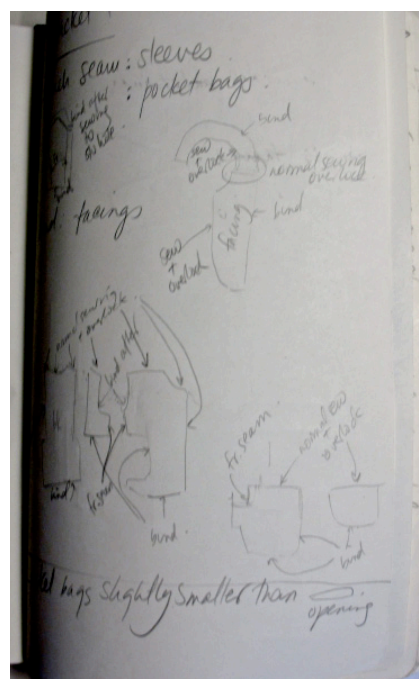 seam: sleeves
: pocket bags.
bind after
sewing
to
bind
sew
+
overlock
normal sewing
overlock
bind
facings
facing
bind
sew
+
overlock
normal sewing
+ overlock
bind after
bind?
fr. seam
bind.
fr. seam
normal sew
+
overlock
bind
bags slightly smaller than
opening